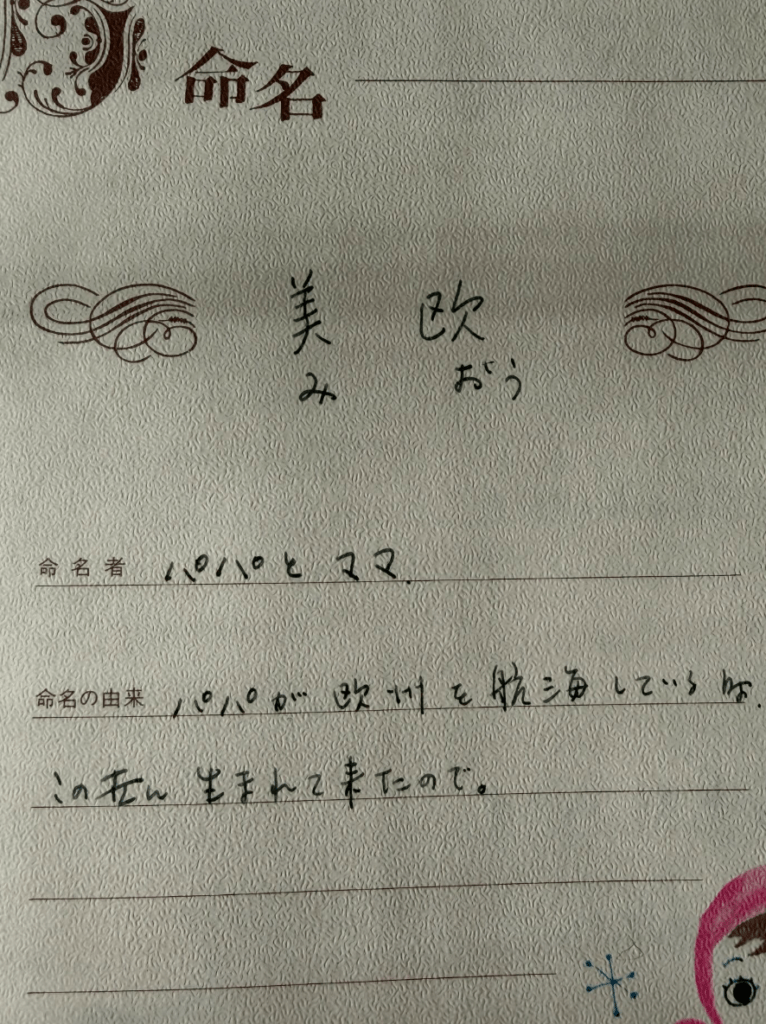 命名
美 欧
み おう
命名者 パパと ママ.
命名の由来 パパが 欧州を航海している時.
この世に 生まれて来たので。